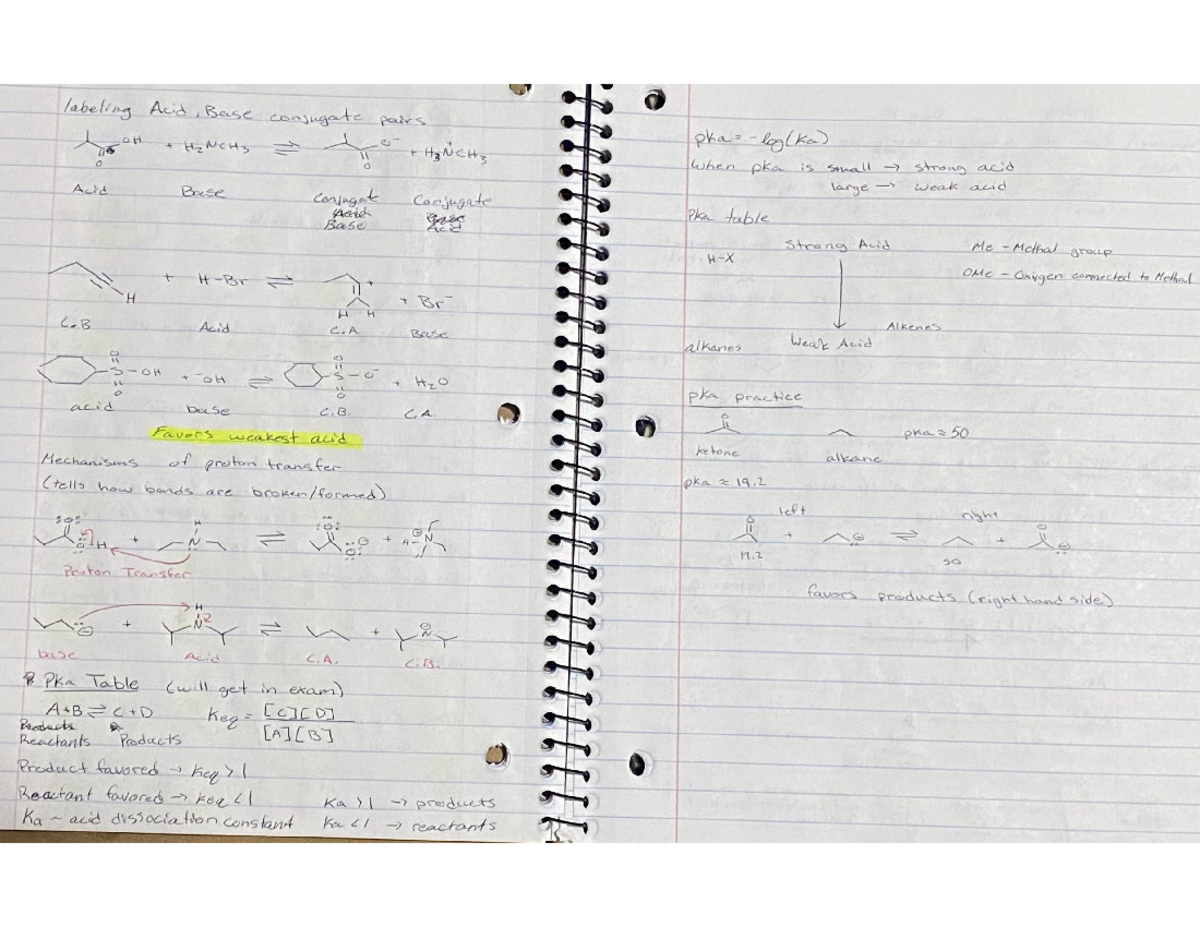 labeling Acid, Base conjugate pairs
OH + H₂NCH₃ ⇌ O⁻ + H₃N⁺CH₃
O O
Acid Base Conjugate Conjugate
Acid Base
Base Acid
+ H-Br ⇌ + + Br⁻
H H H
C.B Acid C.A Base
O O
S-OH + ⁻OH ⇌ S-O⁻ + H₂O
O O
acid base C.B. C.A
Favors weakest acid
Mechanisms of proton transfer
(tells how bonds are broken/formed)
:O: H :O: ⊕
O-H + N ⇌ O⊖ + H-N
Proton Transfer
H
⊖ + N ⇌ + N⊖
base Acid C.A. C.B.
Pka Table (will get in exam)
A+B ⇌ C+D Keq = [C][D]
[A][B]
Products
Reactants Products
Product favored → Keq > 1
Reactant favored → Keq < 1 Ka > 1 → products
Ka ~ acid dissociation constant Ka < 1 → reactants
pka = -log(Ka)
When pka is small → strong acid
large → weak acid
Pka table
Strong Acid Me - Methal group
H-X
OMe - Oxygen connected to Methal
Alkenes
alkanes Weak Acid
pka practice
O
pka ≈ 50
ketone alkane
pka ≈ 19.2
left right
O + ⊖ ⇌ + O ⊖
19.2 50
favors products (right hand side)